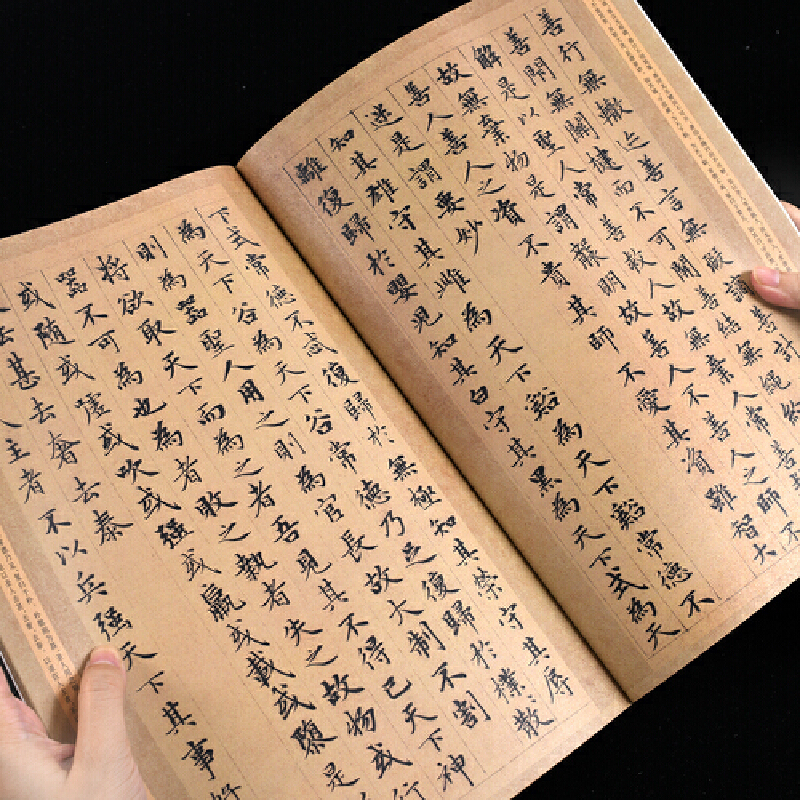 善行無轍迹善言無瑕謫善計
善閉無關楗而不可開善結無繩約
解是以聖人常善救人故無棄人常善救
故無棄物是謂襲明故善人不善人之師不
善人善人之資不貴其師不愛其資雖智大
迷是謂要妙
知其雄守其雌為天下谿為天下谿常德不
離復歸於嬰兒知其白守其黑為天下式為天
下式常德不忒復歸於無極知其榮守其辱
為天下谷為天下谷常德乃足復歸於樸散
則為器聖人用之則為官長故大制不割
將欲取天下而為之者吾見其不得已天下神
器不可為也為者敗之執者失之故物或行
或隨或噓或吹或强或羸或載或隳是
去甚去奢去泰
主者不以兵强天下其事好